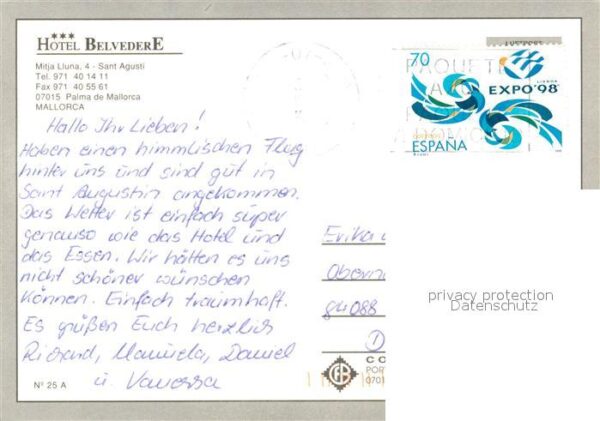 *** 
HOTEL BELVEDERE
Mitja Lluna, 4 - Sant Agustí
Tel. 971 40 14 11
Fax 971 40 55 61
07015 Palma de Mallorca
MALLORCA
Hallo Ihr Lieben!
Haben einen himmlischen Flug
hinter uns und sind gut in
Saint Augustin angekommen.
Das Wetter ist einfach super
genauso wie das Hotel und
das Essen. Wir hätten es uns
nicht schöner wünschen
können. Einfach traumhaft.
Es grüßen Euch herzlich
Richard, Manuela, Daniel
u. Vanessa
Nº 25 A
70
LISBOA
EXPO'98
ESPAÑA
PAQUETE
Erika
84088
D
privacy protection
Datenschutz